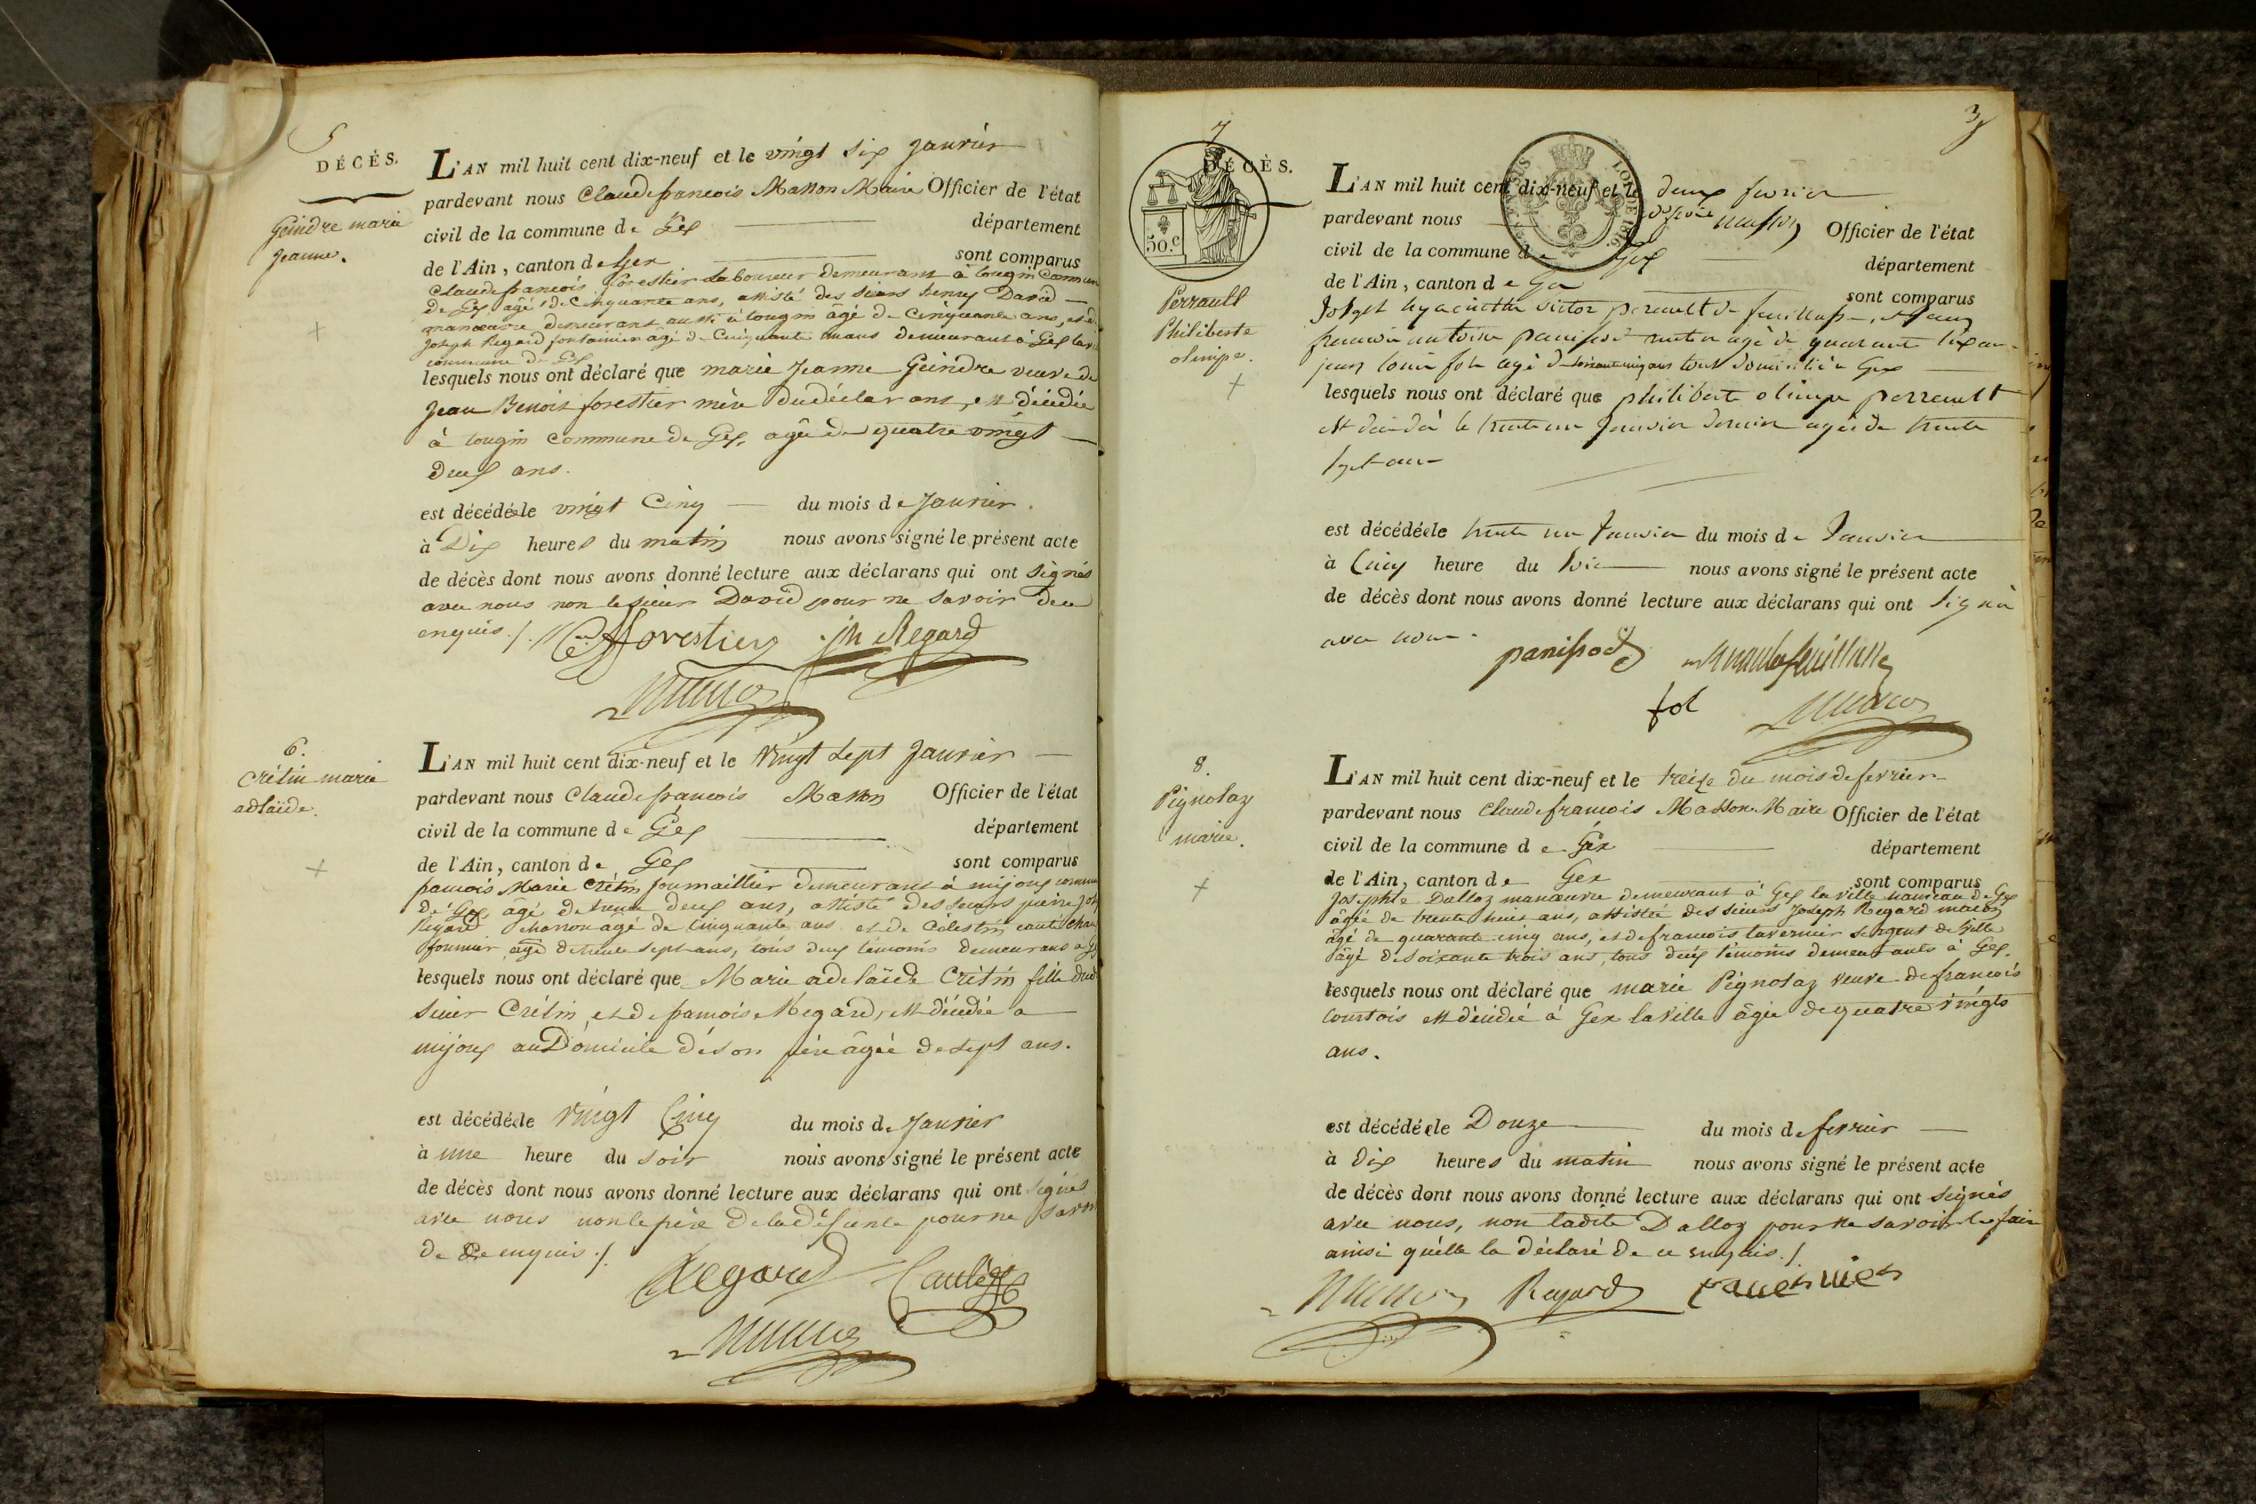 5
DÉCÈS.
Geindre marie
jeanne.
L'AN mil huit cent dix-neuf et le vingt six janvier
pardevant nous Claude francois Masson Maire Officier de l'état
civil de la commune de Gex département
de l'Ain, canton de Gex sont comparus
Claude francois forestier Laboureur demeurant à tougin Commune
de Gex âgé de Cinquante ans, assisté des sieurs henry David
manœuvre demeurant aussi à tougin âgé de Cinquante ans, et de
joseph Regard âgé de Cinquante ans demeurant à Gex
commune de Gex
lesquels nous ont déclaré que marie Jeanne Geindre veuve de
Jean Benoit forestier mère du déclarant, est décédée
à tougin Commune de Gex, agée de quatre vingt
deux ans.
est décédée le vingt Cinq du mois de Janvier.
à Dix heures du matin nous avons signé le présent acte
de décès dont nous avons donné lecture aux déclarans qui ont signés
avec nous non le sieur David pour ne savoir de ce
enquis ./.
forestier jh Regard
6.
Crétin marie
adlaïde.
L'AN mil huit cent dix-neuf et le Vingt sept Janvier
pardevant nous Claude francois Masson Officier de l'état
civil de la commune de Gex département
de l'Ain, canton de Gex sont comparus
francois Marie Crétin demeurant à mijoux commune
de Gex, âgé de trente deux ans, assisté des sieurs pierre
Regard âgé de Cinquante ans et de Célestin
âgé de trente sept ans, tous deux témoins demeurans a Gex
lesquels nous ont déclaré que Marie adelaïde Crétin fille dud
sieur Crétin, et de francoise Regard, est décédée a
mijoux au Domicile de son père âgée de sept ans.
est décédée le Vingt Cinq du mois de Janvier
à une heure du soir nous avons signé le présent acte
de décès dont nous avons donné lecture aux déclarans qui ont signés
avec nous non le père de la défunte pour ne savoir
de Ce enquis ./.
Regard
7
DÉCÈS.
50.c
LOI DE 1816.
3
Perrault
Philiberte
olimpe.
L'AN mil huit cent dix-neuf et le deux fevrier
pardevant nous Officier de l'état
civil de la commune de Gex département
de l'Ain, canton de Gex sont comparus
Joseph hyacinthe victor perrault de
francois antoine panissod âgé de quarante six ans
jean louis fol agé de soixante cinq ans tous domiciliés a Gex
lesquels nous ont déclaré que philiberte olimpe perrault
est décédée le trente un Janvier dernier agée de trente
sept ans
est décédée le trente un Janvier du mois de Janvier
à Cinq heure du soir nous avons signé le présent acte
de décès dont nous avons donné lecture aux déclarans qui ont signé
avec nous.
panissod
fol
8.
Pignolaz
marie.
L'AN mil huit cent dix-neuf et le treize du mois de fevrier
pardevant nous Claude francois Masson Maire Officier de l'état
civil de la commune de Gex département
de l'Ain, canton de Gex sont comparus
Josephte Dalloz manœuvre demeurant à Gex la ville hameau de Gex
âgée de trente ans, assistée des sieurs Joseph Regard
âgé de quarante cinq ans, et de francois tavernier sergent de Ville
âgé de soixante trois ans, tous deux témoins demeurants à Gex.
lesquels nous ont déclaré que marie Pignolaz veuve de francois
Courtois est décédée à Gex la Ville âgée de quatre vingts
ans.
est décédée le Douze du mois de fevrier
à dix heures du matin nous avons signé le présent acte
de décès dont nous avons donné lecture aux déclarans qui ont signés
avec nous, non ladite Dalloz pour ne savoir le faire
ainsi qu'elle la déclaré de ce enquis ./.
Regard tavernier